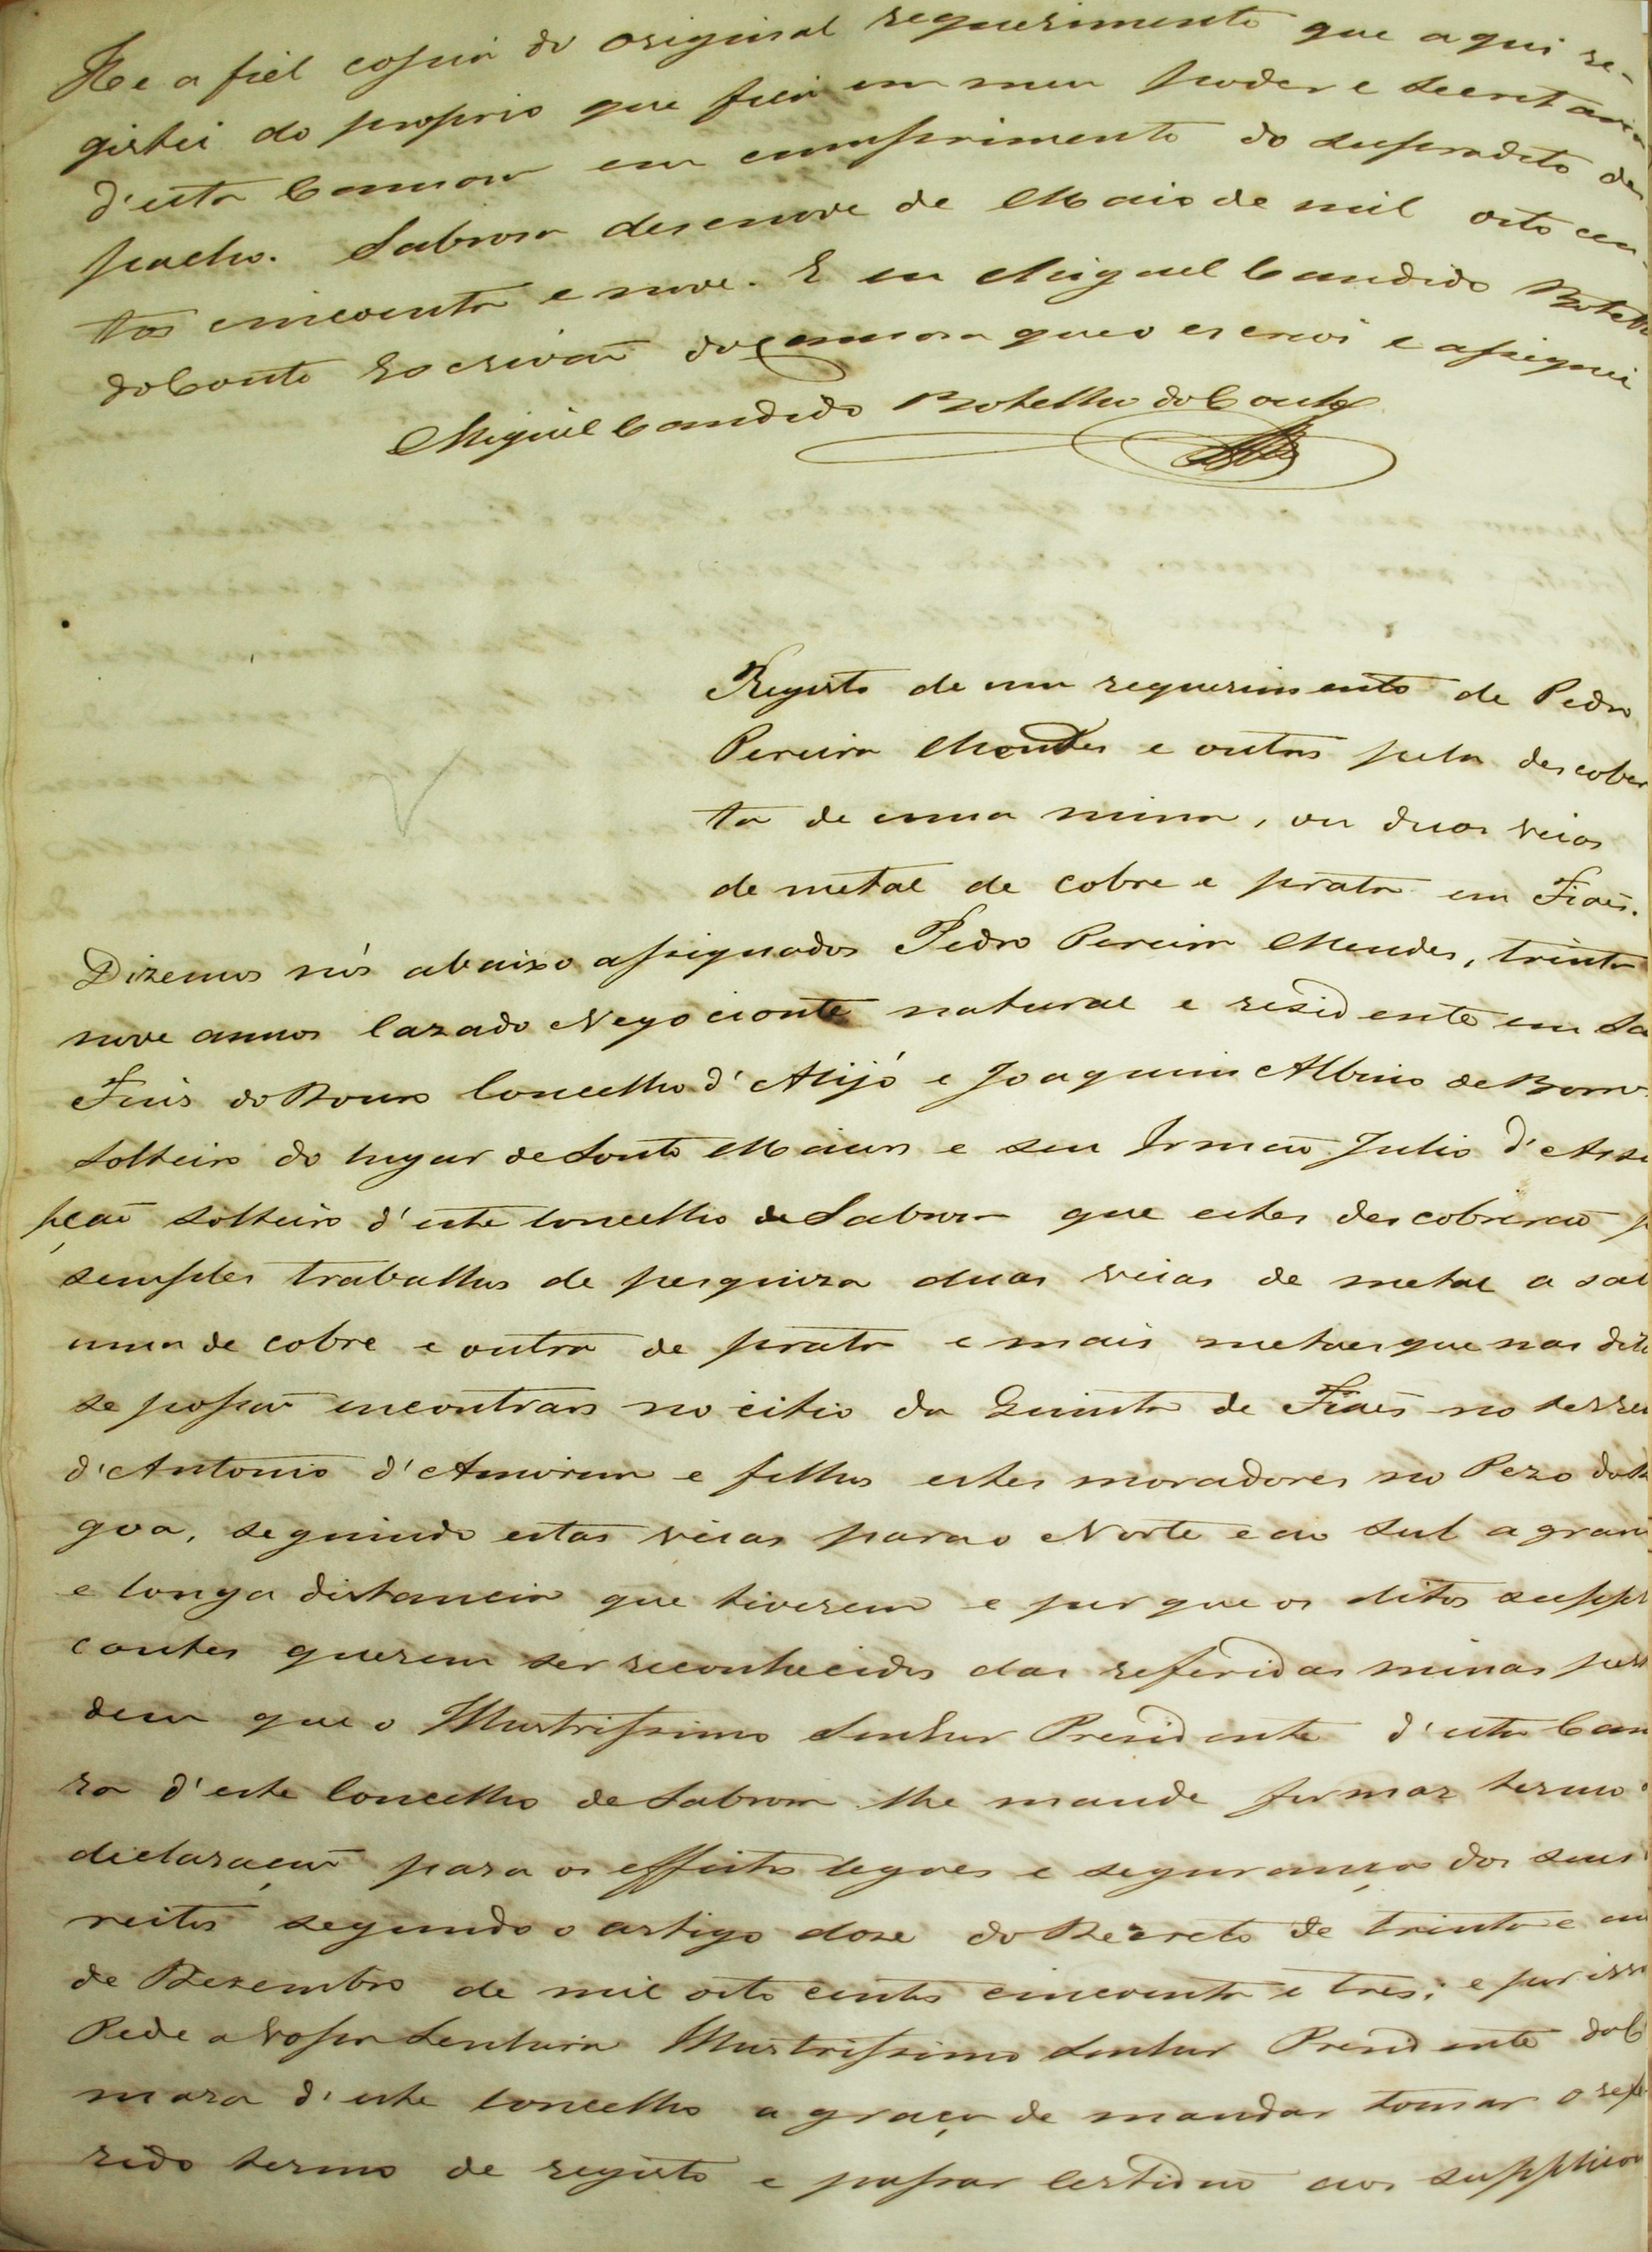 He a fiel copia do original requerimento que aqui re-
gistei do proprio que fica em meu poder e secretaria
d'esta Camara em cumprimento do supradito des
pacho. Sabrosa desenove de Maio de mil oito cen-
tos cincoenta e nove. E eu Miguel Candido Botelho
do Couto Escrivaõ da Camara que o escrevi e assignei
Miguel Candido Botelho do Couto
Registo de um requerimento de Pedro
Pereira Mendes e outros pela descober
ta de uma mina, ou duas veias
de metal de cobre e prata em Fiaes.
Dizemos nós abaixo assignados Pedro Pereira Mendes, trinta
nove annos Cazado Negociante natural e residente em Sa
Fins do Douro Concelho d'Alijó e Joaquim Albino de Barro
Solteiro do lugar de Souto Maior e seu Irmaõ Julio d'Assu
pçaõ solteiro d'este concelho de Sabrosa que estes descobriraõ p
simples trabalhos de pesquiza duas veias de metal a sab
uma de cobre e outra de prata e mais metaes que nas dita
se possaõ encontrar no citio da Quinta de Fiaes no terren
d'Antonio d'Amorim e filhos estes moradores no Pezo da Re
goa, seguindo estas veias para o Norte e ao Sul a gran
e longa distancia que tiverem e por que os ditos suppli
cantes querem ser reconhecidos das referidas minas per
dem que o Illustrissimo Senhor Presidente d'esta Cam
ra d'este Concelho de Sabrosa lhe mande formar termo
declaraçaõ para os effeitos legaes e segurança dos seus
reitos segundo o artigo doze do Decreto de trinta e um
de Dezembro de mil oito centos cincoenta e tres; e por isso
Pede a Vossa Senhoria Illustrissimo Senhor Presidente da C
mara d'este Concelho a graça de mandar tomar o refe-
rido termo de registo e passar Certidaõ aos supplican